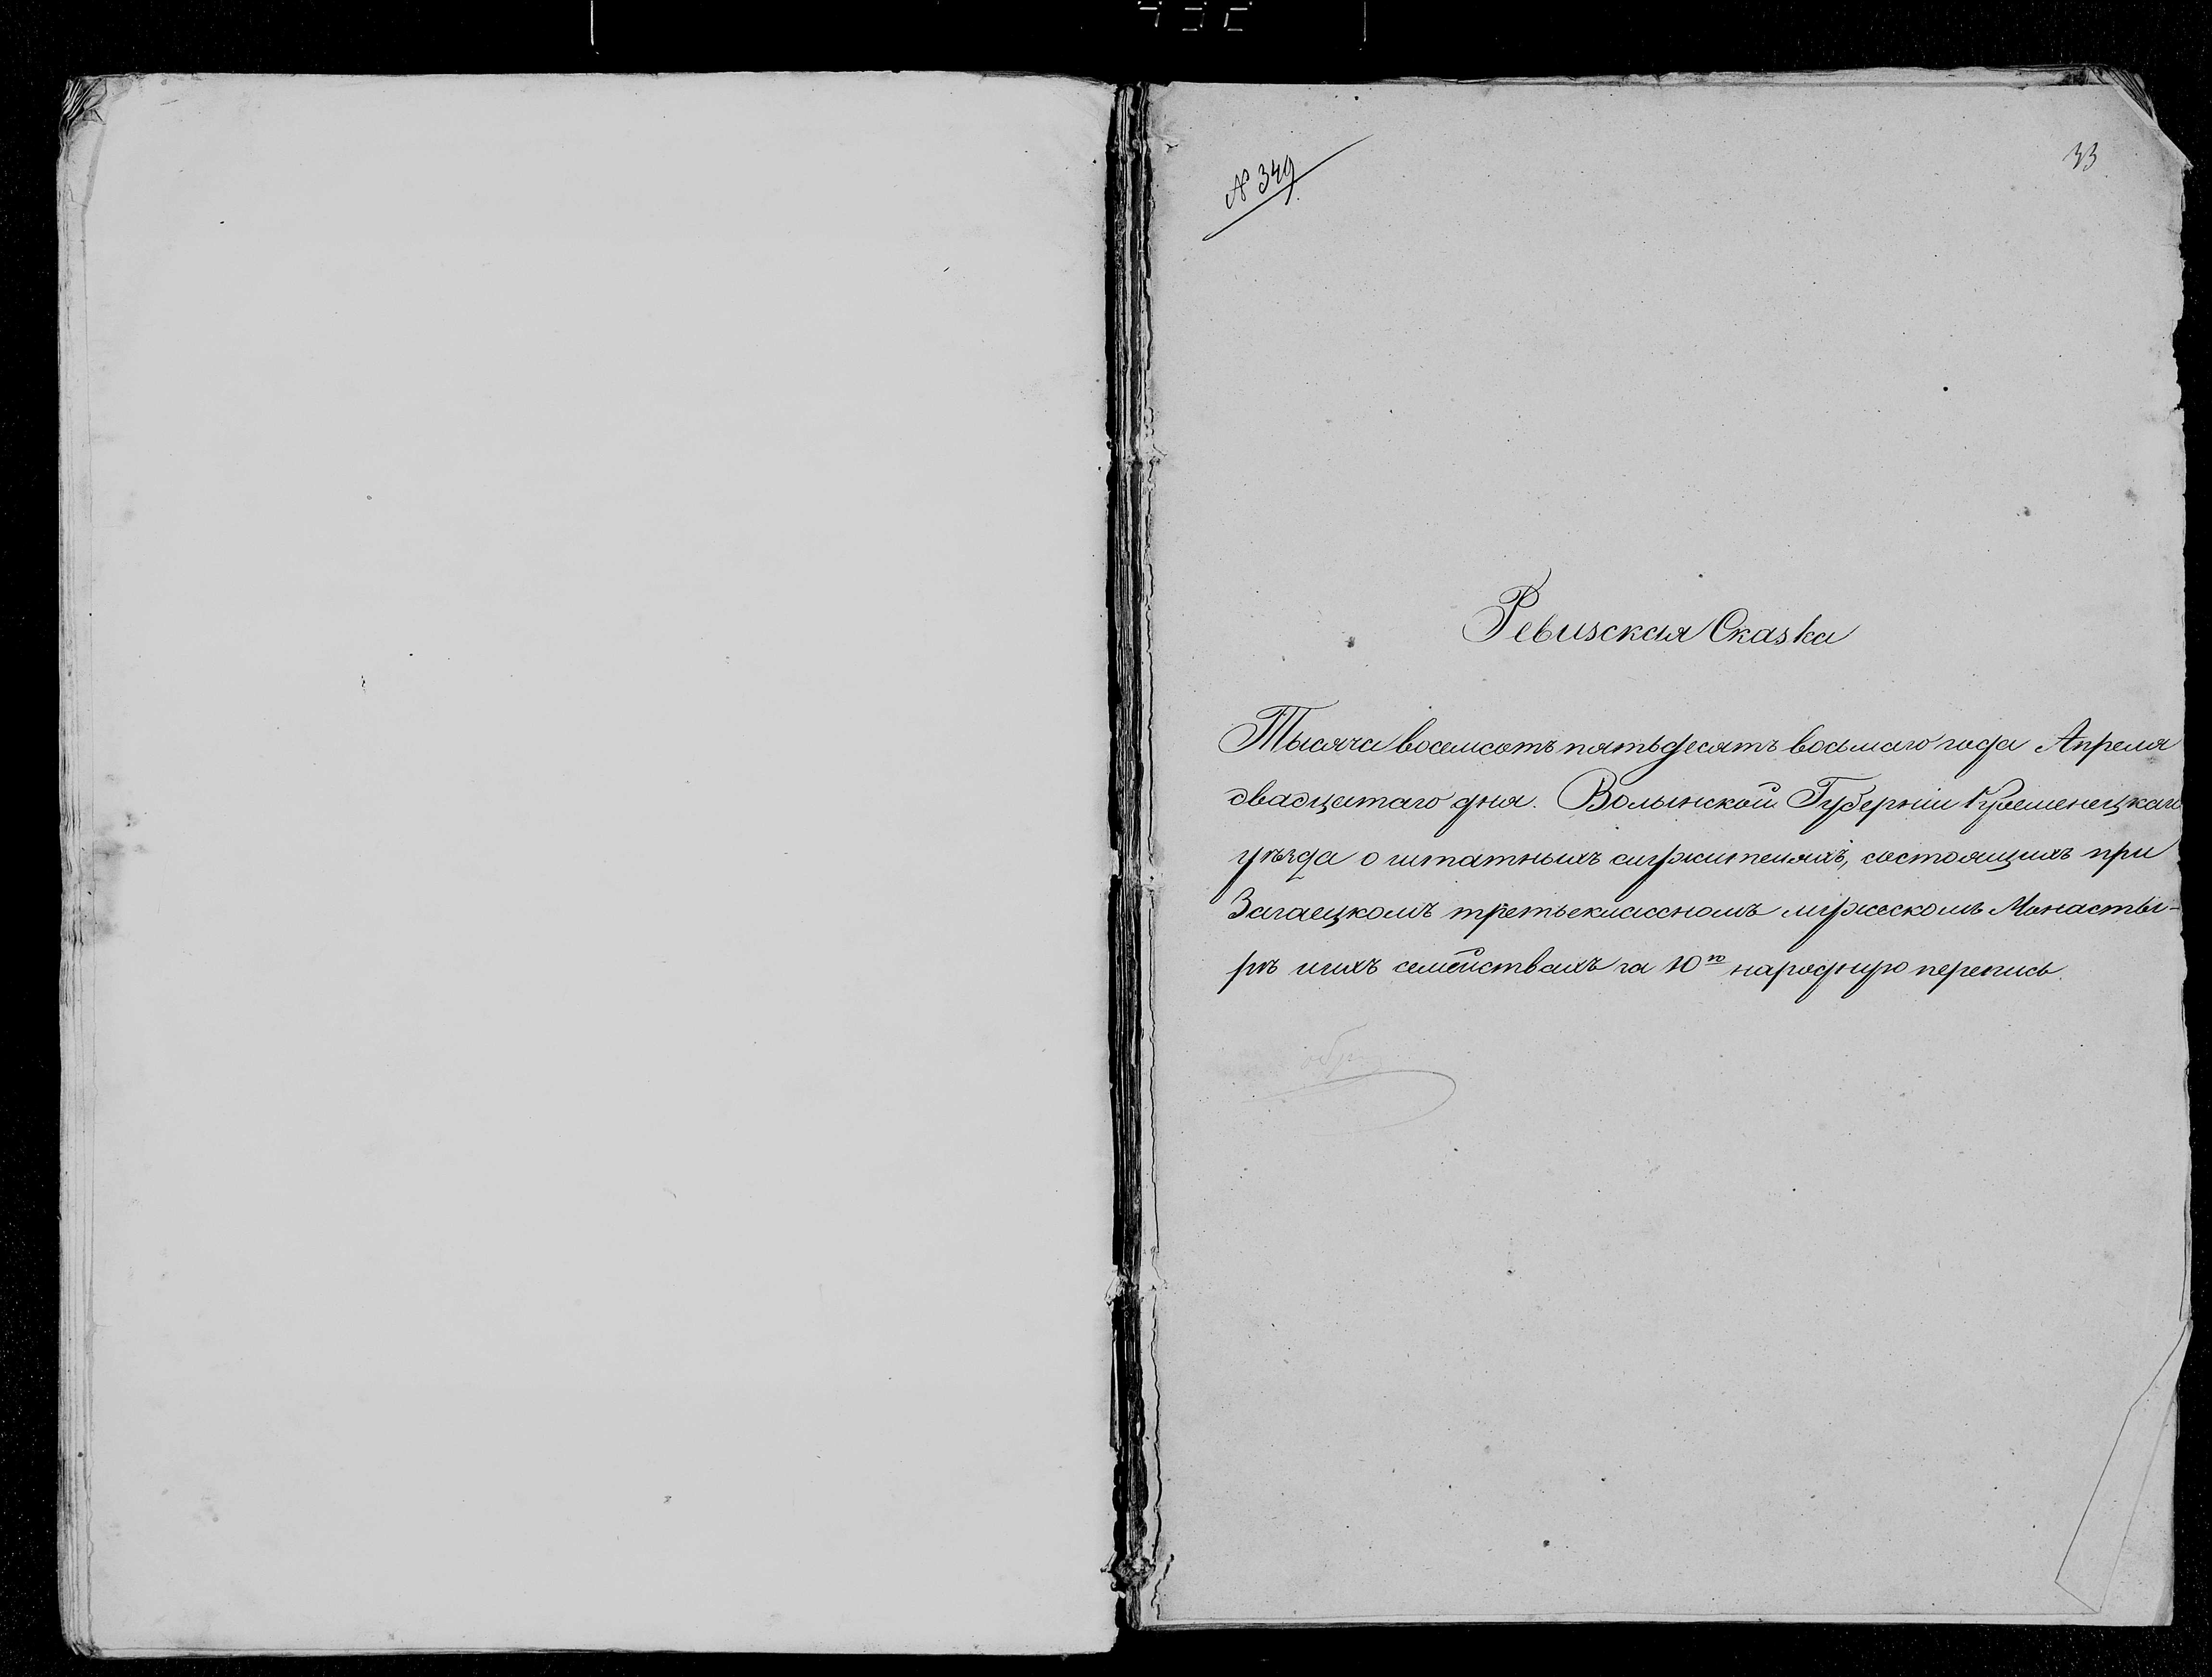 № 349
33
Ревизская Сказка
Тысяча восемсотъ пятьдесятъ восьмаго года Апреля
двадцатаго дня. Волынской Губерніи Кременецкаго
уѣзда о штатныхъ служителяхъ, состоящихъ при
Загаецкомъ третьеклассномъ мужескомъ Монасты-
рѣ и ихъ семействахъ за 10ю народную перепись.